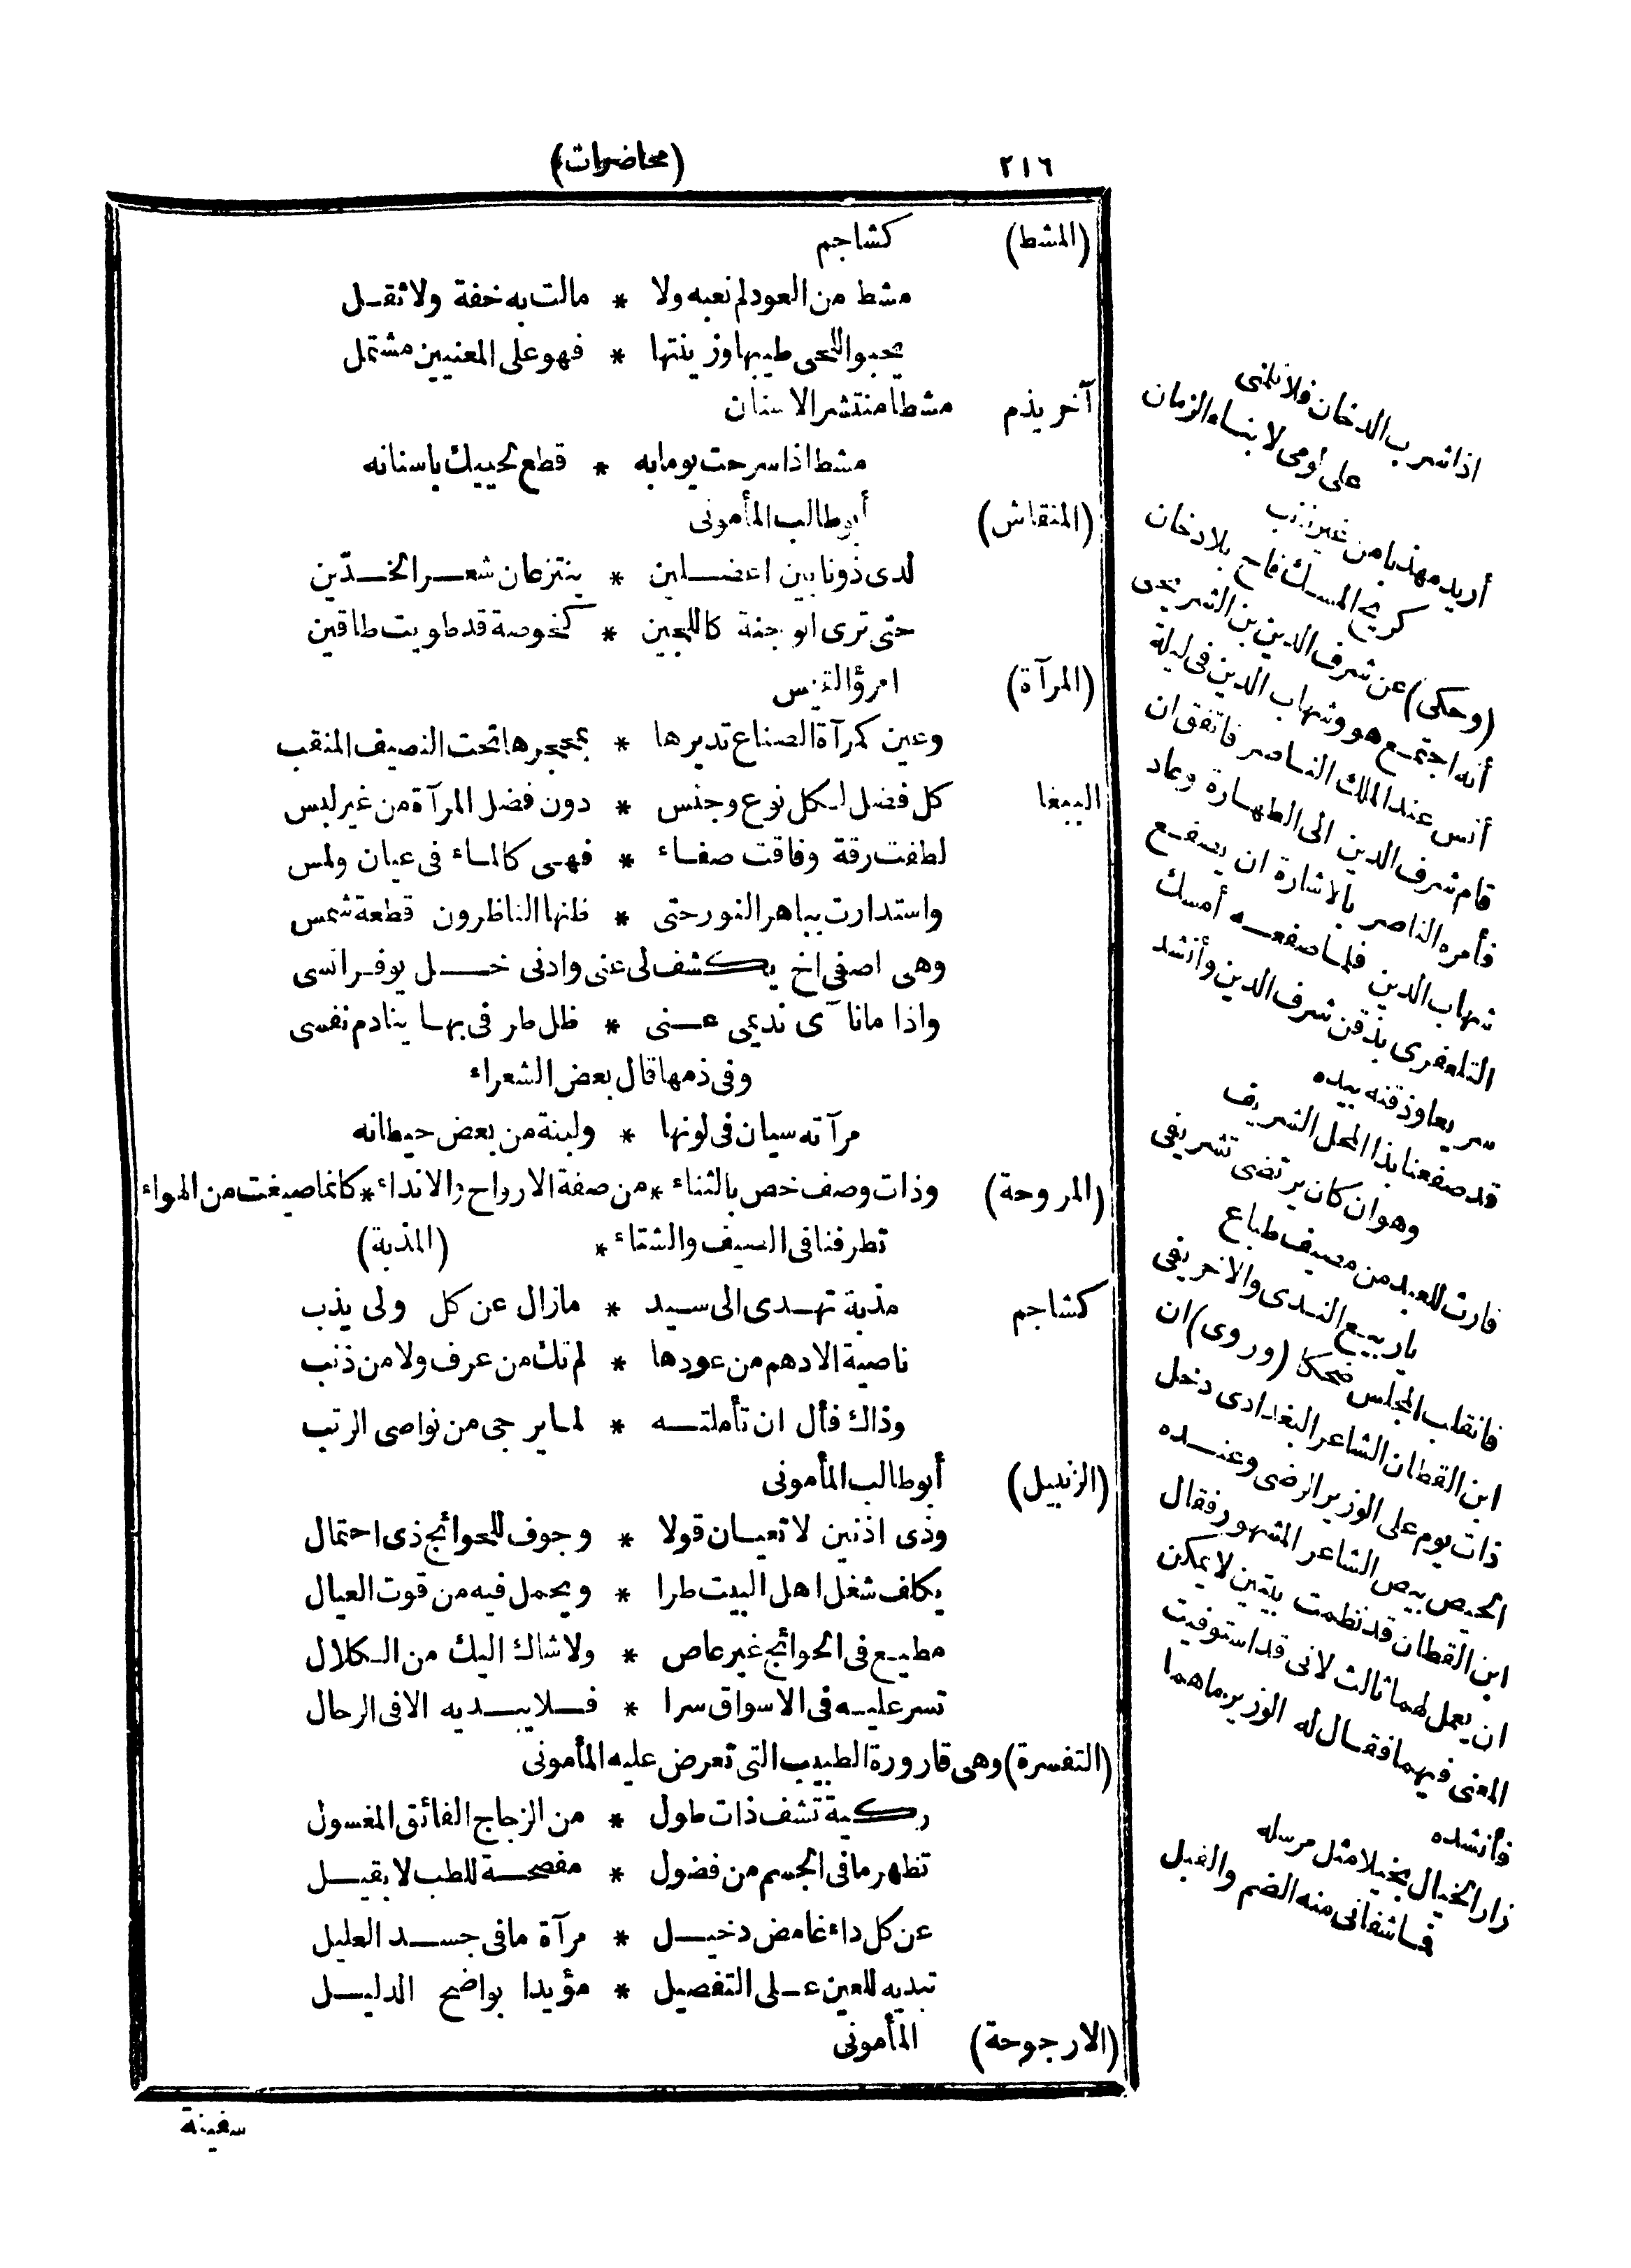 ٢١٦ (محاضرات)
(المشط) كشاجم
مشط من العود لم نعبه ولا * مالت به خفة ولا ثقل
يحبو اللحى طيبها وزينتها * فهو على المعنيين مشتمل
آخر يذم مشطا منتشر الاسنان
مشط اذا سرحت يوما به * قطع لحييك باسنانه
(المنقاش) أبو طالب المأمونى
لدى ذونابين اعضلين * ينتزعان شعر الخدّين
حتى ترى ابو جنة كاللجين * كخوصة قد طويت طاقين
(المرآة) امرؤ القيس
وعين كمرآة الصناع تديرها * بمحجرها تحت النصيف المنقب
الببغا كل فضل لكل نوع وجنس * دون فضل المرآة من غير لبس
لطفت رقة وفاقت صفاء * فهى كالماء فى عيان ولمس
واستدارت بباهر النور حتى * ظنها الناظرون قطعة شمس
وهى اصفى اخ يكشف لى عنى وادنى خل يوفر انسى
واذا مانآى نديمى عنى * ظل طرفى بها ينادم نفسى
وفى ذمها قال بعض الشعراء
مرآته سيان فى لونها * ولبنة من بعض حيطانه
(المروحة) وذات وصف خص بالثناء * من صفة الارواح والانداء * كانما صيغت من الهواء
تطرفنا فى الصيف والشتاء * (المذبة)
كشاجم مذبة تهدى الى سيد * مازال عن كل ولى يذب
ناصية الادهم من عودها * لم تك من عرف ولا من ذنب
وذاك فأل ان تأملته * لما يرجى من نواصى الرتب
(الزنبيل) أبو طالب المأمونى
وذى اذنين لا تعيان قولا * وجوف للحوائج ذى احتمال
يكلف شغل اهل البيت طرا * ويحمل فيه من قوت العيال
مطيع فى الحوائج غير عاص * ولا شاك اليك من الكلال
تسر عليه فى الاسواق سرا * فلا يبديه الا فى الرحال
(التفسرة) وهى قارورة الطبيب التى تعرض عليه المأمونى
ركية تشف ذات طول * من الزجاج الفائق المغسول
تظهر مافى الجسم من فضول * مفصحة للطب لا بقيل
عن كل داء غامض دخيل * مرآة مافى جسد العليل
تبديه للعين على التفصيل * مؤيدا بواضح الدليل
(الارجوحة) المأمونى
سفينة
اذا شرب الدخان فلا تلمنى
على لومى لابناء الزمان
أريد مهذبا من غير ذنب
كريح المسك فاح بلا دخان
(وحكى) عن شرف الدين بن الشريحى
أنه اجتمع هو وشهاب الدين فى ليلة
أنس عند الملك الناصر فاتفق ان
قام شرف الدين الى الطهارة وعاد
فأمره الناصر بالاشارة ان يصفع
شهاب الدين فلما صفعه أمسك
التلعفرى بذقن شرف الدين وأنشد
سريعا وذقنه بيده
قد صفعنا بذا المحل الشريف
وهو ان كان يرتضى تشريفى
فارث للعبد من مصيف طباع
ياربيع الندى والا خريفى
فانقلب المجلس ضحكا (وروى) ان
ابن القطان الشاعر البغدادى دخل
ذات يوم على الوزير الرضى وعنده
الحيص بيص الشاعر المشهور فقال
ابن القطان قد نظمت بيتين لا يمكن
ان يعمل لهما ثالث لانى قد استوفيت
المعنى فيهما فقال له الوزير ماهما
فأنشده
زار الخيال بخيلا مثل مرسله
فما شفانى منه الضم والقبل